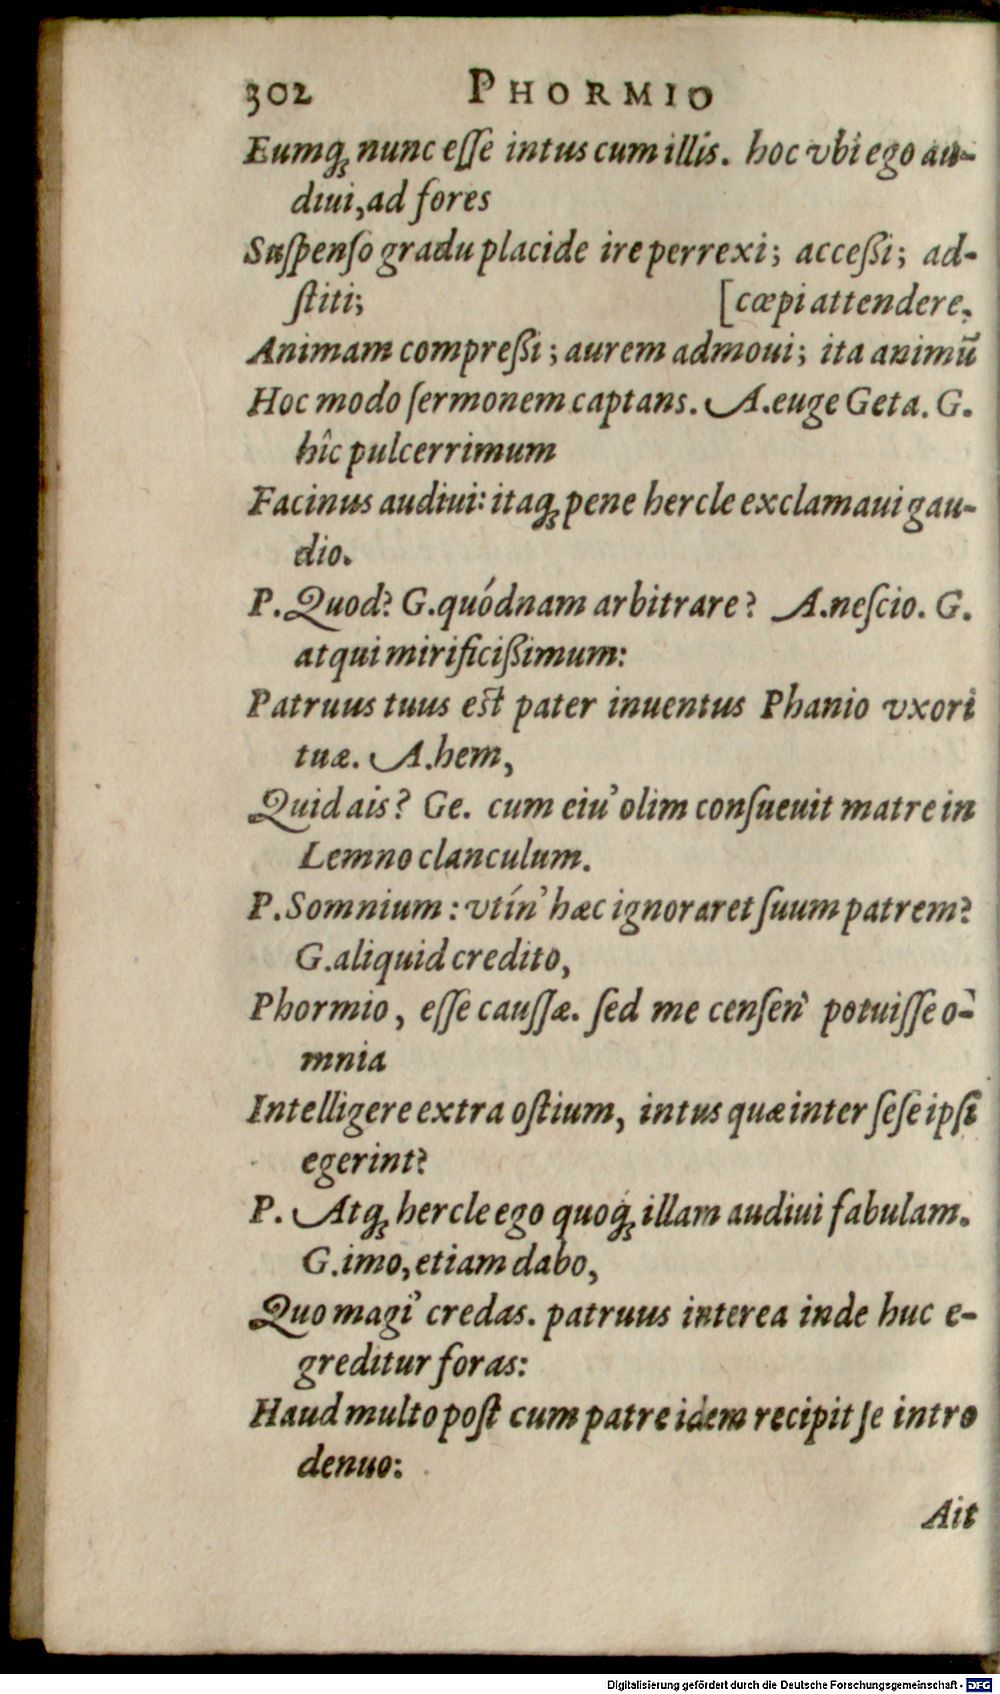 302 PHORMIO
Eumq́ꝫ nunc eſſe intus cum illis. hoc vbi ego au-
diui, ad fores
Suſpenſo gradu placide ire perrexi; acceßi; ad-
ſtiti; [cæpi attendere,
Animam compreßi; aurem admoui; ita animū
Hoc modo ſermonem captans. A. euge Geta. G.
hîc pulcerrimum
Facinus audiui: itaq́ꝫ pene hercle exclamaui gau-
dio.
P. Quod? G. quódnam arbitrare? A. neſcio. G.
atqui mirificißimum:
Patruus tuus est pater inuentus Phanio vxori
tuæ. A. hem,
Quid ais? Ge. cum eiu' olim conſueuit matre in
Lemno clanculum.
P. Somnium: vtín' hæc ignoraret ſuum patrem?
G. aliquid credito,
Phormio, eſſe cauſſæ. ſed me cenſen' potuiſſe o-
mnia
Intelligere extra oſtium, intus quæ inter ſeſe ipſi
egerint?
P. Atq́ꝫ hercle ego quoq́ꝫ illam audiui fabulam.
G. imo, etiam dabo,
Quo magi' credas. patruus interea inde huc e-
greditur foras:
Haud multo poſt cum patre idem recipit ſe intro
denuo:
Ait
Digitalisierung gefördert durch die Deutsche Forschungsgemeinschaft - DFG